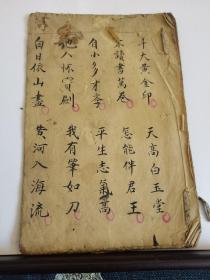 斗大黃金印 天高白玉堂
不讀書萬卷 怎能伴君王
自小多才斈 平生志氣高
他人怀宝剑 我有筆如刀
白日依山盡 黄河入海流